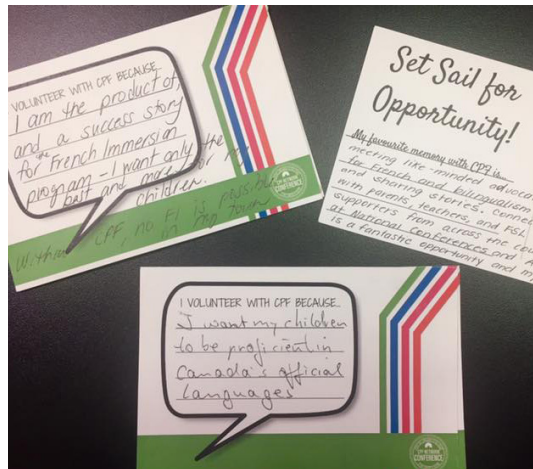 VOLUNTEER WITH CPF BECAUSE...
I am the product of,
and a success story
for the French Immersion
program - I want only the
best and more for my
children.
CPF, no FI is possible
in my town
CONFERENCE
Set Sail for
Opportunity!
My favourite memory with CPF is...
meeting like-minded advoca
for French and bilingualism
and sharing stories. Connec
with parents, teachers, and FSL
supporters from across the cou
at National Conferences and
is a fantastic opportunity and m
I VOLUNTEER WITH CPF BECAUSE...
I want my children
to be proficient in
Canada's official
languages
CPF NETWORK
CONFERENCE